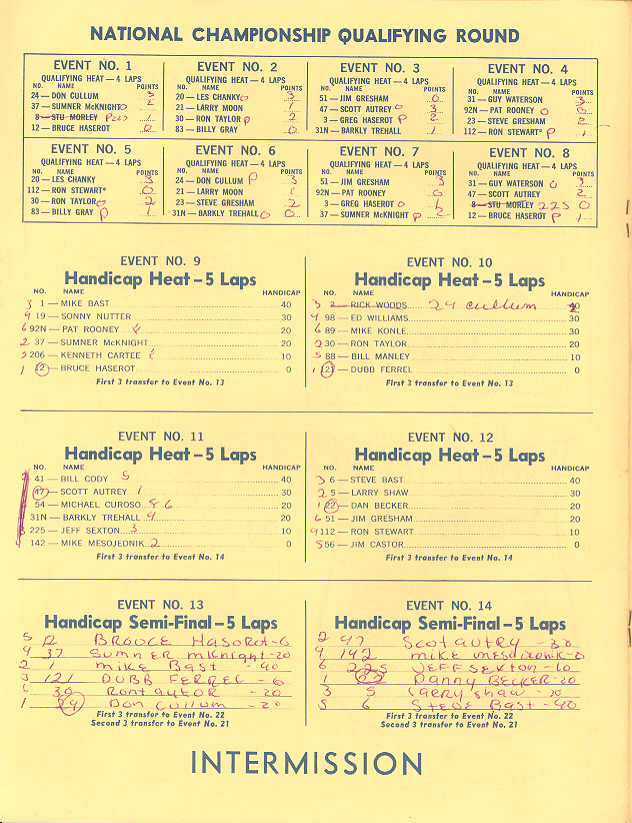 NATIONAL CHAMPIONSHIP QUALIFYING ROUND
EVENT NO. 1
QUALIFYING HEAT—4 LAPS
NO. NAME POINTS
24 — DON CULLUM 3
37 — SUMNER McKNIGHT 2
8 — STU MORLEY 1
12 — BRUCE HASEROT 0
EVENT NO. 2
QUALIFYING HEAT—4 LAPS
NO. NAME POINTS
20 — LES CHANKY 3
21 — LARRY MOON 1
30 — RON TAYLOR 2
83 — BILLY GRAY 0
EVENT NO. 3
QUALIFYING HEAT—4 LAPS
NO. NAME POINTS
51 — JIM GRESHAM 0
47 — SCOTT AUTREY 3
3 — GREG HASEROT 2
31N — BARKLY TREHALL 1
EVENT NO. 4
QUALIFYING HEAT—4 LAPS
NO. NAME POINTS
31 — GUY WATERSON 3
92N — PAT ROONEY 0
23 — STEVE GRESHAM 2
112 — RON STEWART* 1
EVENT NO. 5
QUALIFYING HEAT—4 LAPS
NO. NAME POINTS
20 — LES CHANKY 3
112 — RON STEWART* 0
30 — RON TAYLOR 2
83 — BILLY GRAY P 1
EVENT NO. 6
QUALIFYING HEAT—4 LAPS
NO. NAME POINTS
24 — DON CULLUM P 3
21 — LARRY MOON 1
23 — STEVE GRESHAM 2
31N — BARKLY TREHALL 0 0
EVENT NO. 7
QUALIFYING HEAT—4 LAPS
NO. NAME POINTS
51 — JIM GRESHAM 3
92N — PAT ROONEY 0
3 — GREG HASEROT 0 1
37 — SUMNER McKNIGHT P 2
EVENT NO. 8
QUALIFYING HEAT—4 LAPS
NO. NAME POINTS
31 — GUY WATERSON 0 3
47 — SCOTT AUTREY 2
8 — STU MORLEY 225 0
12 — BRUCE HASEROT P 1
EVENT NO. 9
Handicap Heat—5 Laps
NO. NAME HANDICAP
3 1 — MIKE BAST 40
4 19 — SONNY NUTTER 30
6 92N — PAT ROONEY 20
2 37 — SUMNER McKNIGHT 20
5 206 — KENNETH CARTEE 10
1 12 — BRUCE HASEROT 0
First 3 transfer to Event No. 13
EVENT NO. 10
Handicap Heat—5 Laps
NO. NAME HANDICAP
3 2 — RICK WOODS 24 cullum 40
4 98 — ED WILLIAMS 30
6 89 — MIKE KONLE 30
2 30 — RON TAYLOR 20
5 88 — BILL MANLEY 10
1 121 — DUBB FERREL 0
First 3 transfer to Event No. 13
EVENT NO. 11
Handicap Heat—5 Laps
NO. NAME HANDICAP
41 — BILL CODY 5 40
47 — SCOTT AUTREY 1 30
54 — MICHAEL CUROSO 6 20
31N — BARKLY TREHALL 4 20
225 — JEFF SEXTON 3 10
142 — MIKE MESOJEDNIK 2 0
First 3 transfer to Event No. 14
EVENT NO. 12
Handicap Heat—5 Laps
NO. NAME HANDICAP
3 6 — STEVE BAST 40
2 5 — LARRY SHAW 30
1 22 — DAN BECKER 20
6 51 — JIM GRESHAM 20
4 112 — RON STEWART 10
5 56 — JIM CASTOR 0
First 3 transfer to Event No. 14
EVENT NO. 13
Handicap Semi-Final—5 Laps
5 12 BROUCE HASOROT-0
4 37 SUMNER mKnight-20
2 1 mike Bast -40
3 121 DUBB FERREL - 0
6 30 Ron taylor -20
1 24 Don Cullum -20
First 3 transfer to Event No. 22
Second 3 transfer to Event No. 21
EVENT NO. 14
Handicap Semi-Final—5 Laps
2 47 Scot autry - 30
4 142 mike
6 225 JEFF SEXTON-10
1 22 Danny BECKER-20
3 5 Larry shaw - 30
5 6 STEVE BAST-40
First 3 transfer to Event No. 22
Second 3 transfer to Event No. 21
INTERMISSION